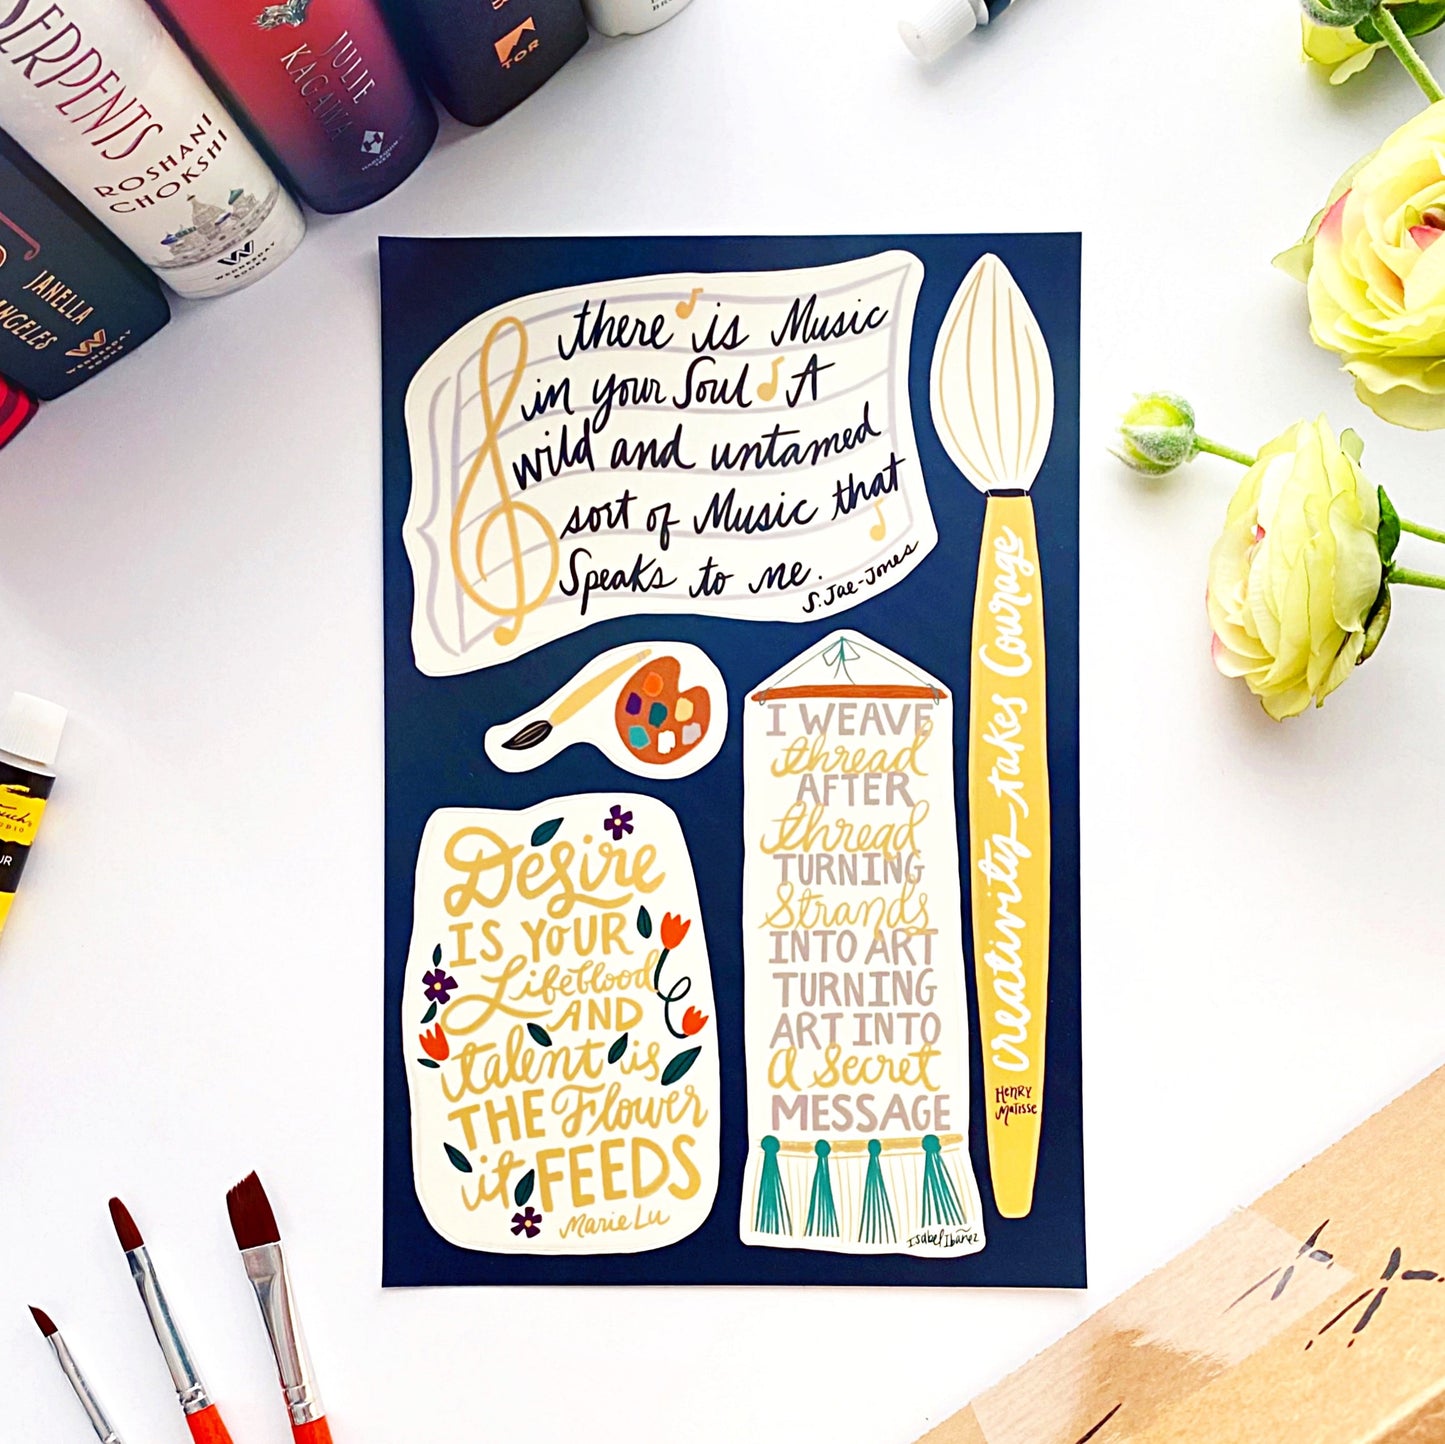 SERPENTS
ROSHANI
CHOKSHI
WEDNESDAY
BOOKS
JULIE
KAGAWA
TOR
JANELLA
ANGELES
WEDNESDAY
BOOKS
there is Music
in your Soul A
wild and untamed
sort of Music that
Speaks to me.
S. Jae-Jones
Creativity takes Courage
Henry
Matisse
I WEAVE
thread
AFTER
thread
TURNING
Strands
INTO ART
TURNING
ART INTO
A Secret
MESSAGE
Isabel Ibañez
Desire
IS YOUR
Lifeblood
AND
talent is
THE Flower
it FEEDS
Marie Lu